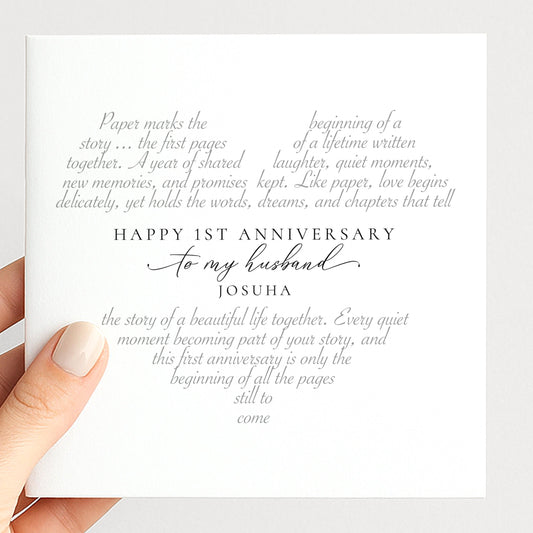 Paper marks the beginning of a
story ... the first pages of a lifetime written
together. A year of shared laughter, quiet moments,
new memories, and promises kept. Like paper, love begins
delicately, yet holds the words, dreams, and chapters that tell
HAPPY 1ST ANNIVERSARY
to my husband
JOSUHA
the story of a beautiful life together. Every quiet
moment becoming part of your story, and
this first anniversary is only the
beginning of all the pages
still to
come